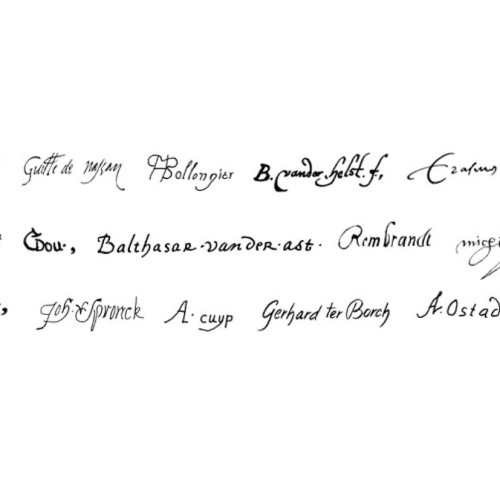 Guille de nassau HBollongier B. vander. helst. f, Erasmus
Dou., Balthasar. vander. ast. Rembrandt
Joh. Spronck A. cuyp Gerhard ter Borch A. Ostad